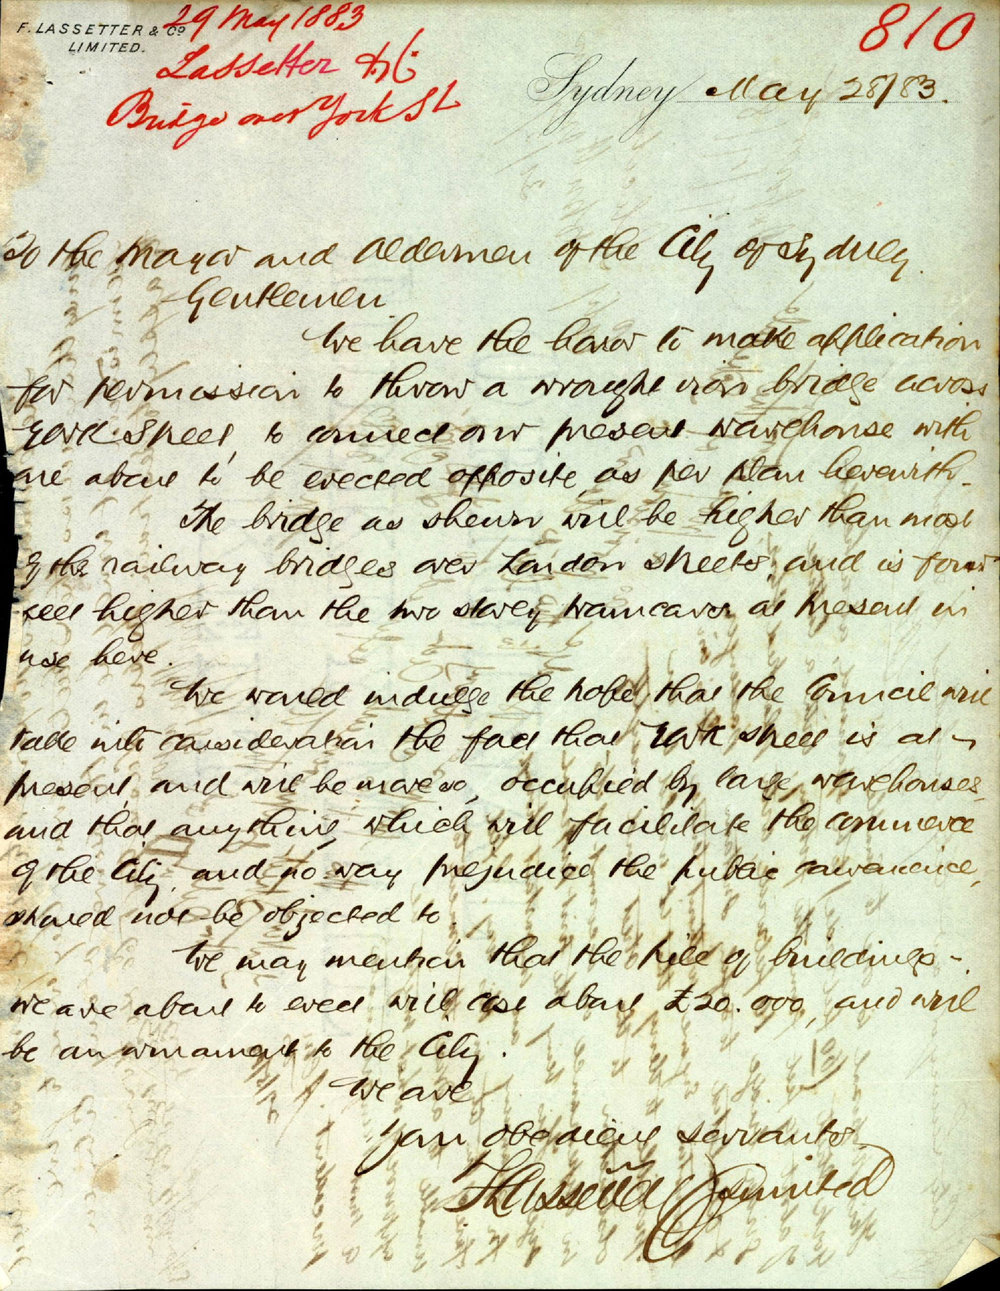 F. LASSETTER & Co
LIMITED.
29 May 1883
Lassetter & Co
Bridge over York St
810
Sydney May 28/83.
To the Mayor and Aldermen of the City of Sydney.
Gentlemen
We have the honor to make application
for permission to throw a wrought iron bridge across
York Street, to connect our present warehouse with
one about to be erected opposite, as per plan herewith.
The bridge as shewn will be higher than most
of the railway bridges over London streets, and is four
feet higher than the two storey tramcars at present in
use here.
We would indulge the hope that the Council will
take into consideration the fact that York Street is at
present, and will be more so, occupied by large warehouses,
and that anything which will facilitate the commerce
of the City, and no way prejudice the public convenience,
should not be objected to.
We may mention that the pile of buildings
we are about to erect will cost about £20.000, and will
be an ornament to the City.
We are
Your obedient servants
F Lassetter & Co Limited